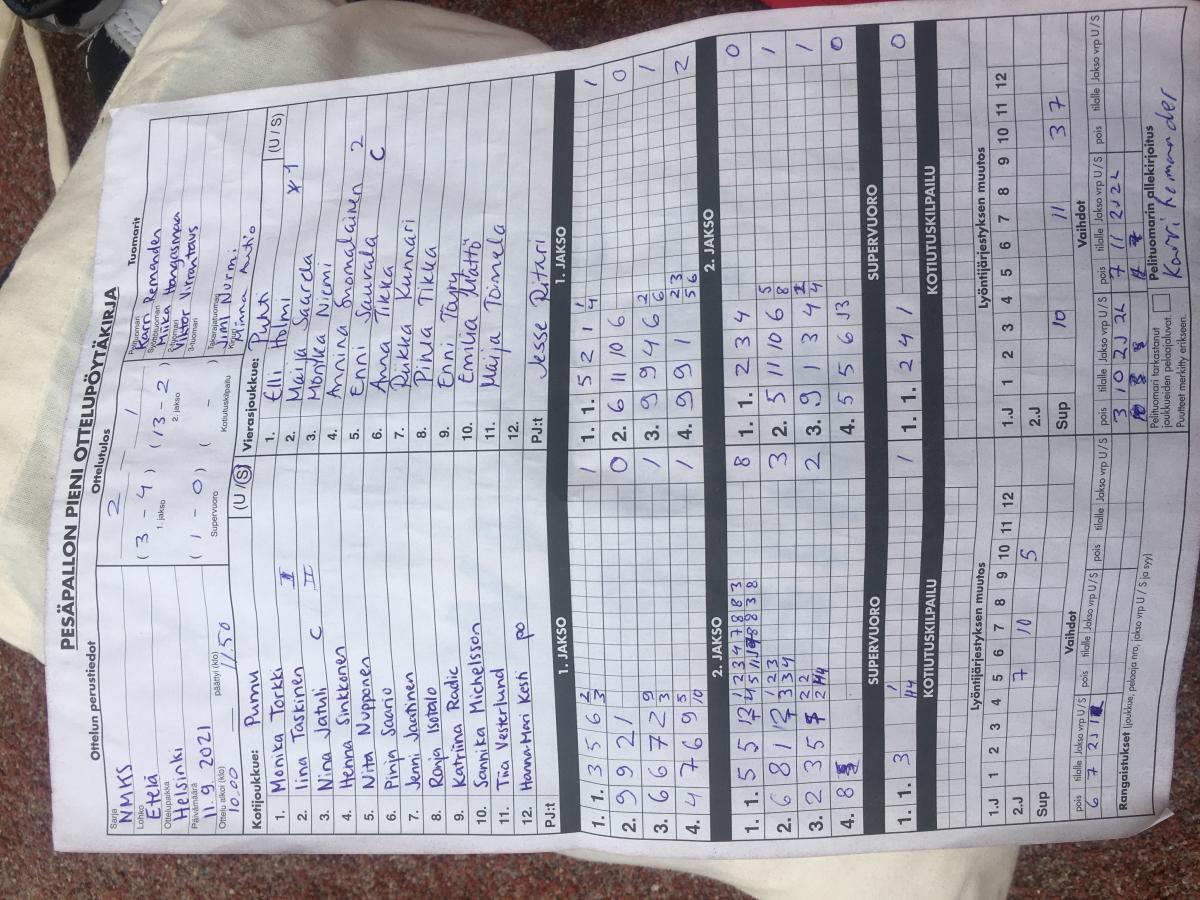 PESÄPALLON PIENI OTTELUPÖYTÄKIRJA
Ottelun perustiedot
Ottelutulos
Tuomarit
Sarja
NMKS
Lohko
Etelä
Ottelupaikka
Helsinki
Päivämäärä
11.9.2021
Ottelu alkoi (klo) päättyi (klo)
10.00 11.50
2 1
( 3 - 4 ) ( 13 - 2 )
1. jakso 2. jakso
( 1 - 0 ) ( - )
Supervuoro Kotiutuskilpailu
Pelituomari
Karri Remander
Syöttötuomari
Miika Hongasmaa
2-tuomari
Viktor Virantaus
3-tuomari
Takarajatuomari
Tomi Nurmi
Kirjuri
Minna Autio
Kotijoukkue: Pumu (U / S)
1. Monika Torkki II
2. Iina Taskinen
3. Nina Jatuli C II
4. Henna Sinkkonen
5. Nita Nupponen
6. Pinja Saario
7. Jenni Jaatinen
8. Ronja Isotalo
9. Katriina Radic
10. Sannika Michelsson
11. Tiia Vesterlund
12. Hanna-Mari Kesti po
PJ:t
Vierasjoukkue: Puhti (U / S)
1. Elli Holmi
2. Maija Saarela x 1
3. Monika Niemi
4. Annina Suomalainen
5. Enni Saurala 2
6. Anna Tikka C
7. Riikka Kunnari
8. Pihla Tikka
9. Enni Tormy
10. Emilia Mättö
11. Maija Toimela
12.
PJ:t Jesse Ritari
1. JAKSO 1. JAKSO
1. 1. 3 5 6 2 3 1
2. 9 9 2 1 0
3. 6 6 7 2 9 3 1
4. 4 7 6 9 5 10 1
1. 1. 5 2 1 1 4 1
2. 6 11 10 6 0
3. 9 9 4 6 2 6 1
4. 9 9 1 2 3 5 6 2
2. JAKSO 2. JAKSO
1. 1. 5 5 12 1 2 3 4 7 8 8 3 8
2. 6 8 1 12 1 2 3 3 3 4 3
3. 2 3 5 2 2 2
4. 8
1. 1. 2 3 4 0
2. 5 11 10 6 5 8 1
3. 9 1 3 4 4 1
4. 5 5 6 13 0
SUPERVUORO SUPERVUORO
1. 1. 3 1 1
1. 1. 2 4 1 0
KOTIUTUSKILPAILU KOTIUTUSKILPAILU
Lyöntijärjestyksen muutos
1.J 1 2 3 4 5 6 7 8 9 10 11 12
2.J 7 10 5
Sup
Lyöntijärjestyksen muutos
1.J 1 2 3 4 5 6 7 8 9 10 11 12
2.J
Sup 10 11 3 7
Vaihdot
pois tilalle Jakso vrp U/S pois tilalle Jakso vrp U/S pois tilalle Jakso vrp U/S
6 7 2J
Vaihdot
pois tilalle Jakso vrp U/S pois tilalle Jakso vrp U/S pois tilalle Jakso vrp U/S
3 10 2J 2L 7 11 2J 2L
Rangaistukset (joukkue, pelaaja nro, jakso vrp, U / S ja syy)
Pelituomari tarkastanut
joukkueiden pelaajaluvat.
Puutteet merkitty erikseen.
Pelituomarin allekirjoitus
Karri Remander